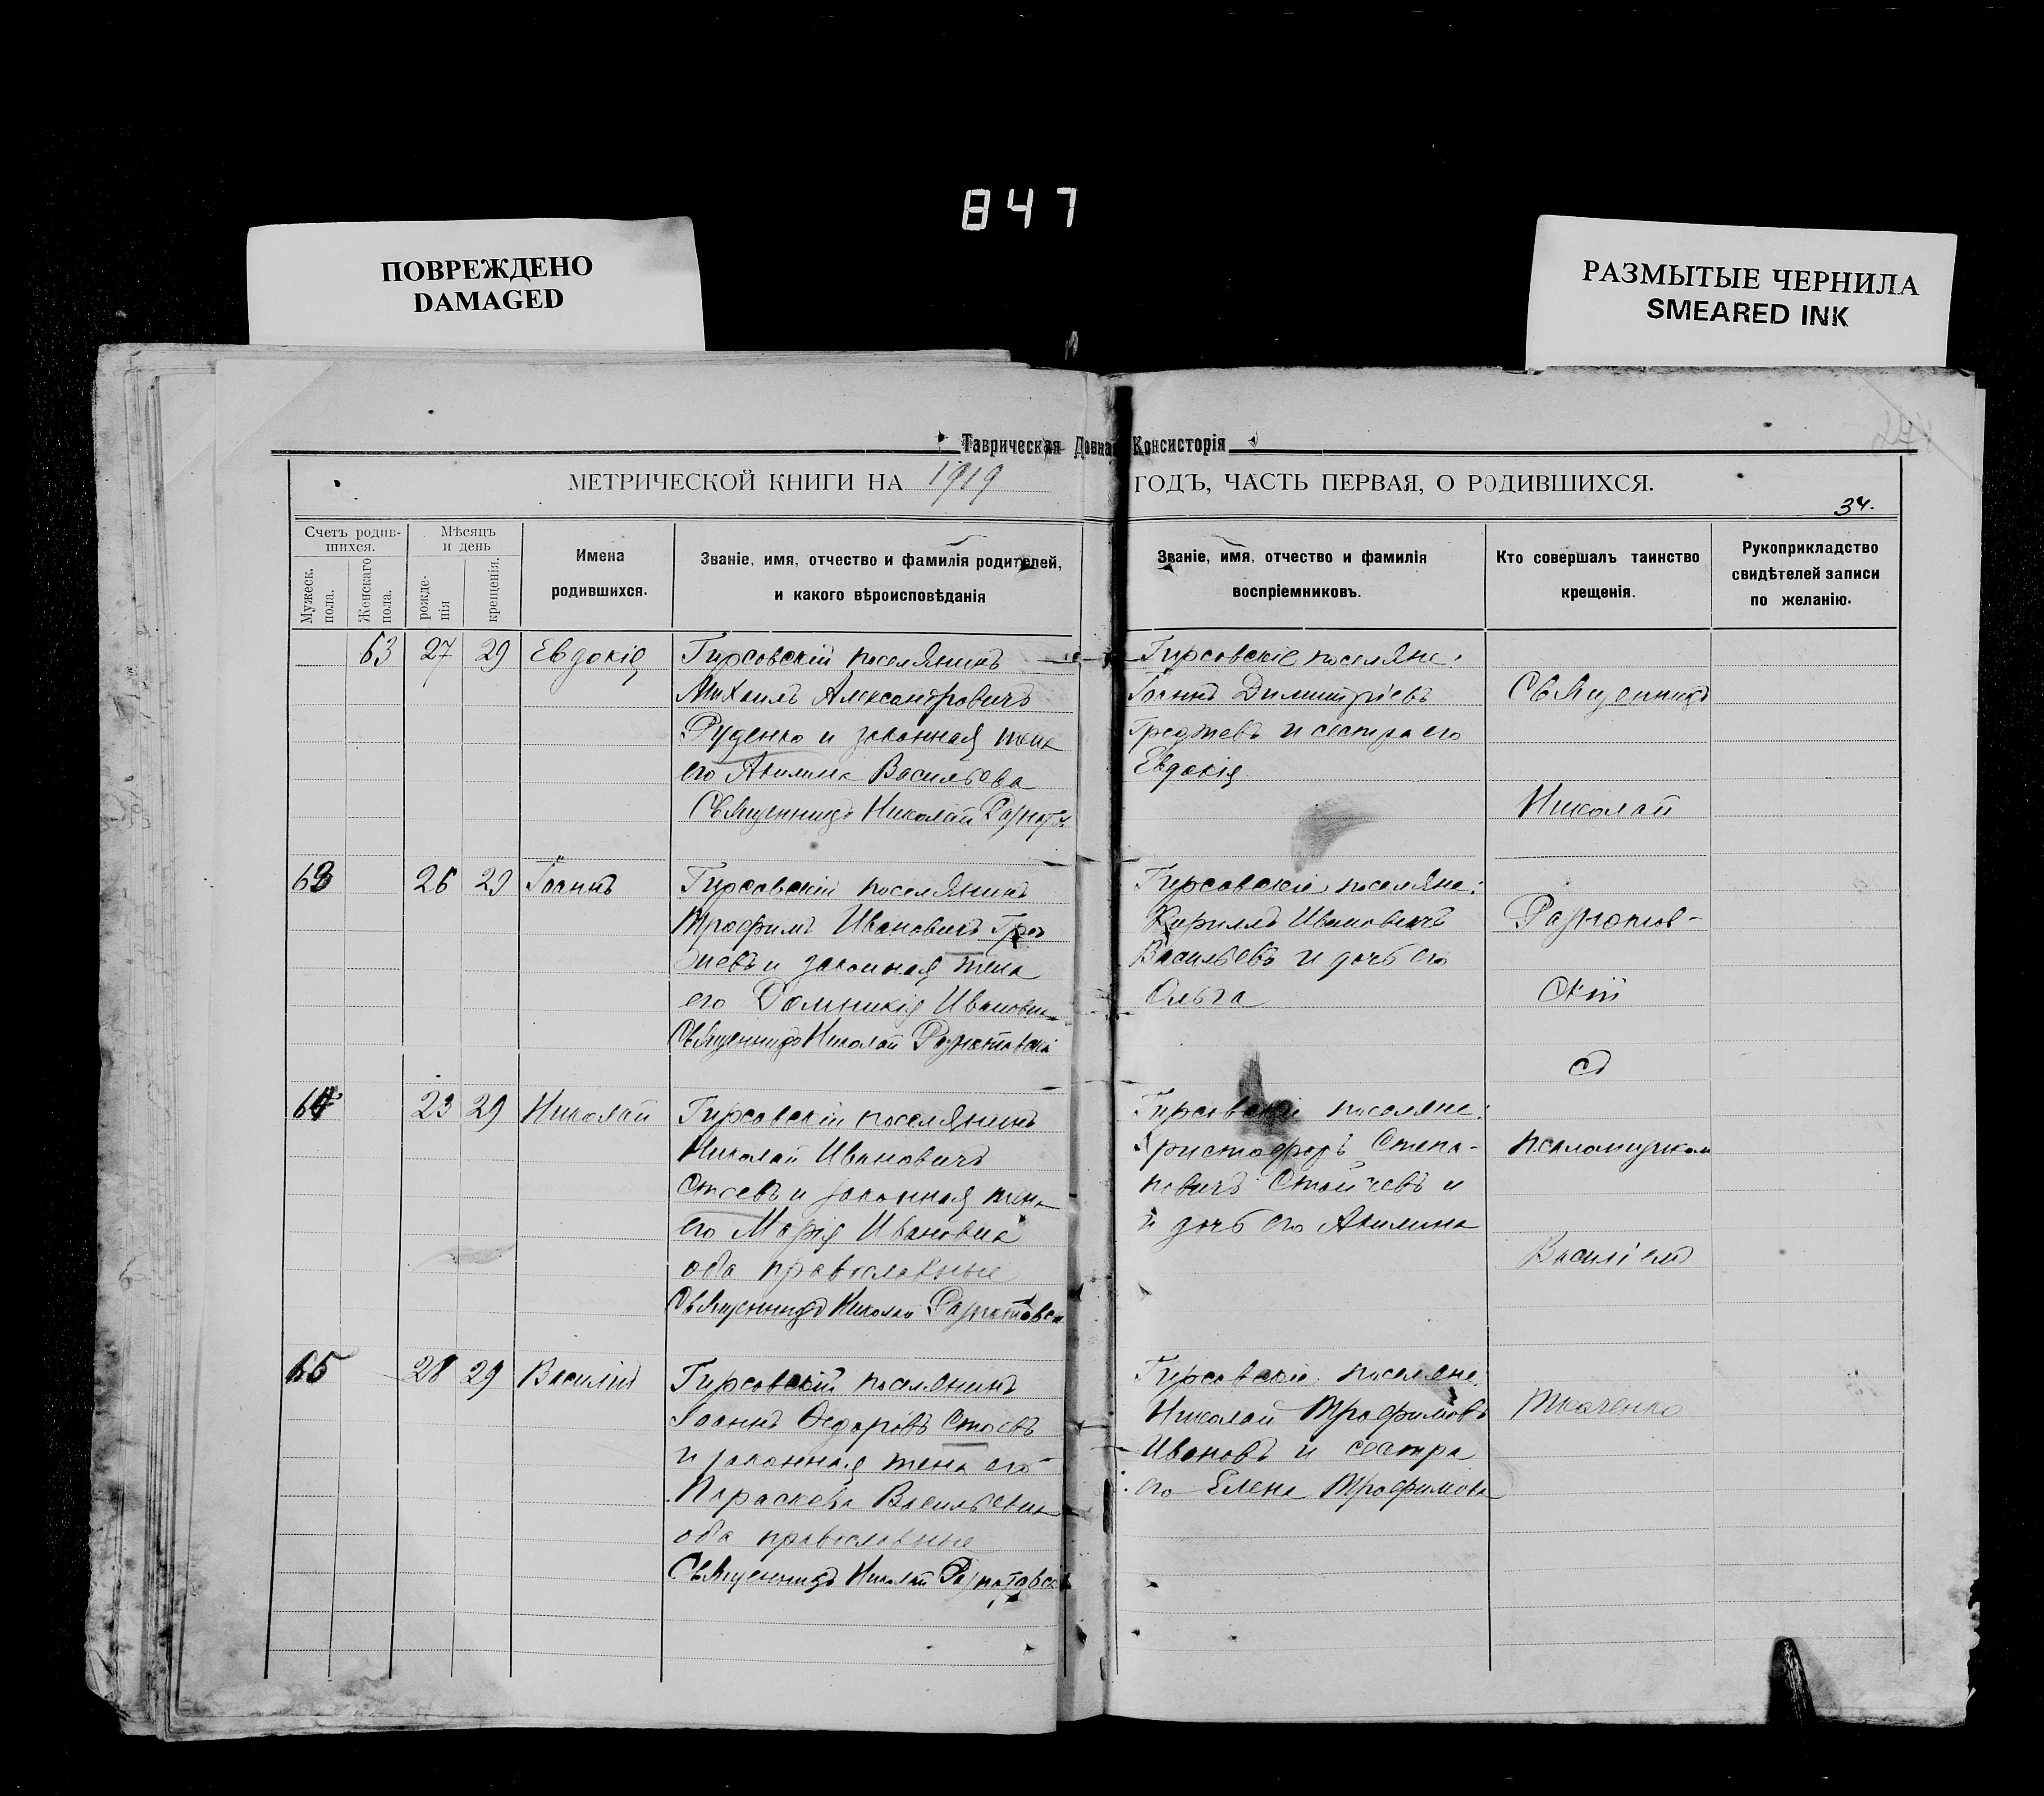 847
ПОВРЕЖДЕНО
DAMAGED
РАЗМЫТЫЕ ЧЕРНИЛА
SMEARED INK
Таврическая Довная Консисторія
МЕТРИЧЕСКОЙ КНИГИ НА 1919 ГОДЪ, ЧАСТЬ ПЕРВАЯ, О РОДИВШИХСЯ.
34.
Счетъ родив-
шихся.
Мужеск.
пола.
Женскаго
пола.
Мѣсяцъ
и день
рожде-
нія
крещенія.
Имена
родившихся.
Званіе, имя, отчество и фамилія родителей,
и какого вѣроисповѣданія
Званіе, имя, отчество и фамилія
воспріемниковъ.
Кто совершалъ таинство
крещенія.
Рукоприкладство
свидѣтелей записи
по желанію.
63 27 29 Евдокія
Гирсовскій поселянинъ
Михаилъ Александровичъ
Руденко и законная жена
его Акилина Васильева
Священникъ Николай
Гирсовскіе поселяне:
Іоаннъ Димитріевъ
и сестра его
Евдокія
63 26 29 Іоаннъ
Гирсовскій поселянинъ
Трофимъ Ивановичъ
и законная жена
его Домникія Ивановна
Священникъ Николай
Гирсовскіе поселяне:
Кириллъ Ивановичъ
Васильевъ и дочь его
Ольга
64 23 29 Николай
Гирсовскій поселянинъ
Николай Ивановичъ
Стоевъ и законная жена
его Марія Ивановна
оба православные
Священникъ Николай
Гирсовскіе поселяне:
Христофоръ Степа-
новичъ Стойчевъ и
и дочь его Акилина
65 28 29 Василій
Гирсовскій поселянинъ
Іоаннъ Ѳедоровъ Стоевъ
и законная жена его
Параскева Васильевна
оба православные
Священникъ Николай
Гирсовскіе поселяне:
Николай Трофимовъ
Ивановъ и сестра
его Елена Трофимова
Священникъ
Николай
скій
съ
псаломщикомъ
Василіемъ
Ткаченко